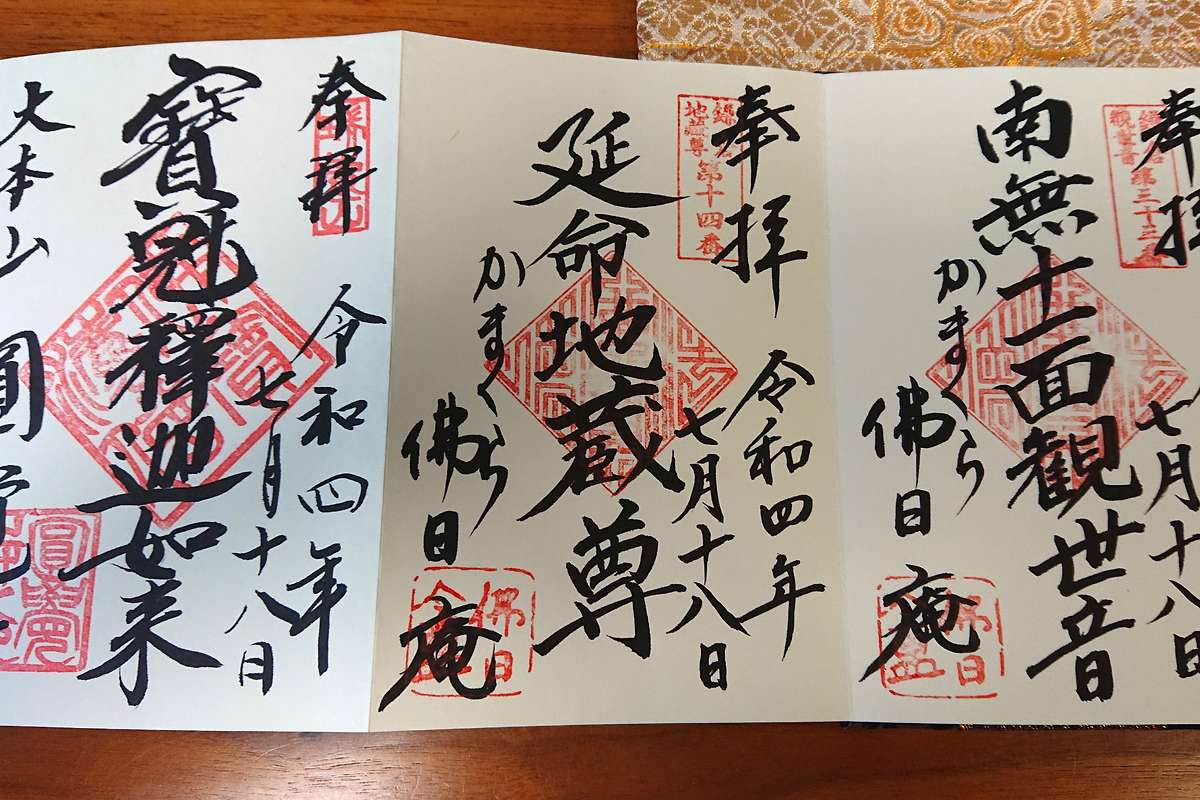 奉拝
七月十八日
南無十一面観世音
かまくら
佛日庵
第三十三番
奉拝
令和四年
七月十八日
延命地蔵尊
かまくら
佛日庵
地蔵尊
第十四番
佛日
奉拝
令和四年
七月十八日
寶冠釋迦如来
大本山
圓覚